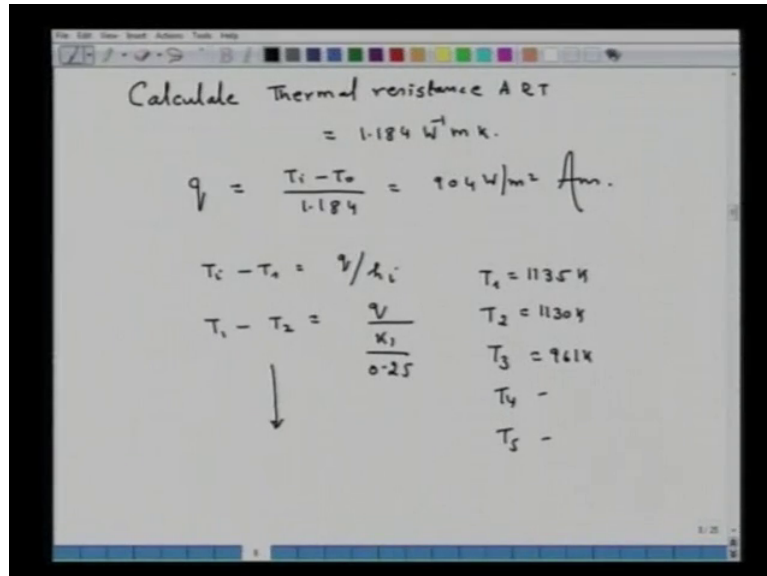 File Edit View Insert Actions Tools Help
Calculale Thermal resistance A R T
= 1.184 W⁻¹ m K.
q = Ti - To / 1.184 = 904 W/m² Am.
Ti - T1 = q/hi T1 = 1135 K
T1 - T2 = q / K1 / 0.25 T2 = 1130 K
T3 = 961 K
T4 -
T5 -